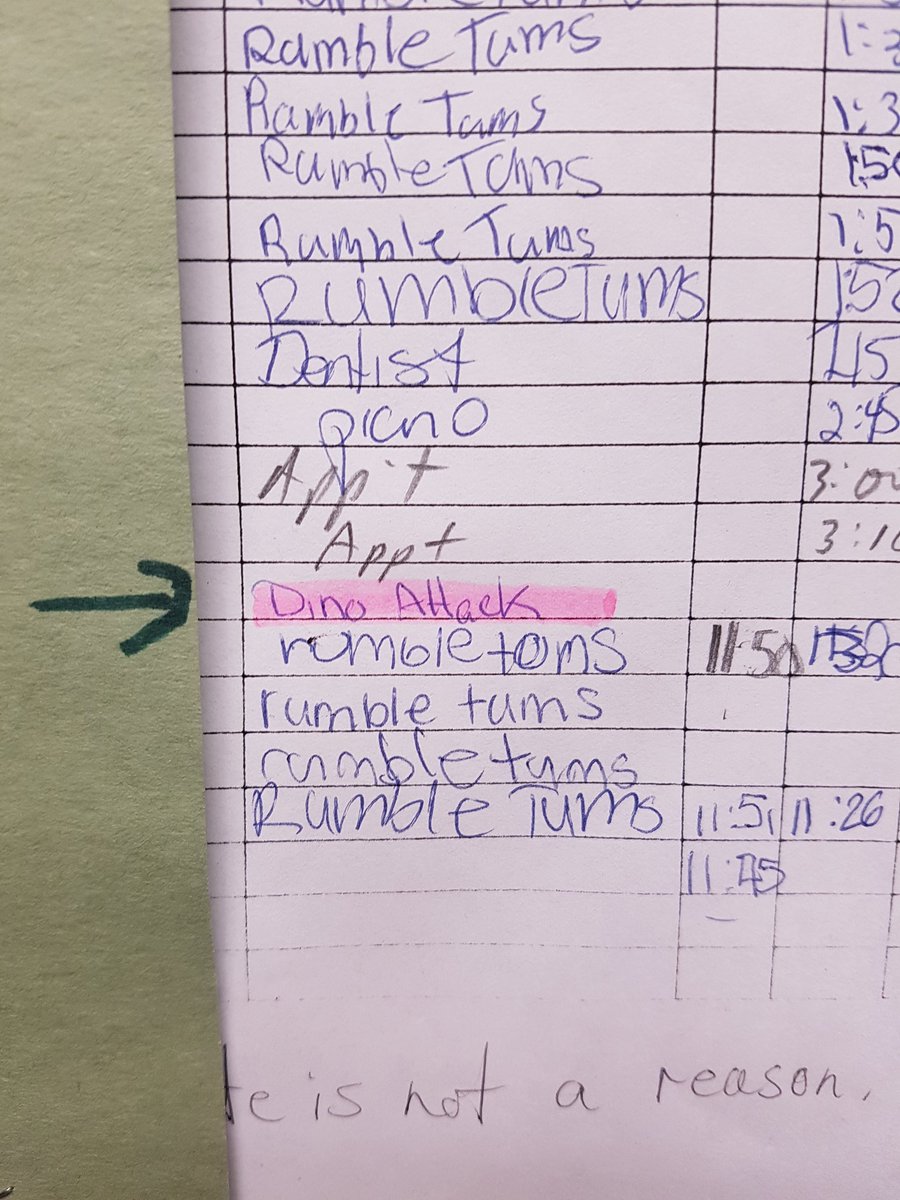 Rumble Tums
Rumble Tums
Rumble Tums 1:5
Rumble Tums 1:5
Rumble Tums 1:5
Dentist
piano 2:45
App't 3:0
Appt 3:1
Dino Attack
rumble tums 11:50
rumble tums
rumble tums
Rumble Tums 11:51 11:26
11:45
is not a reason.